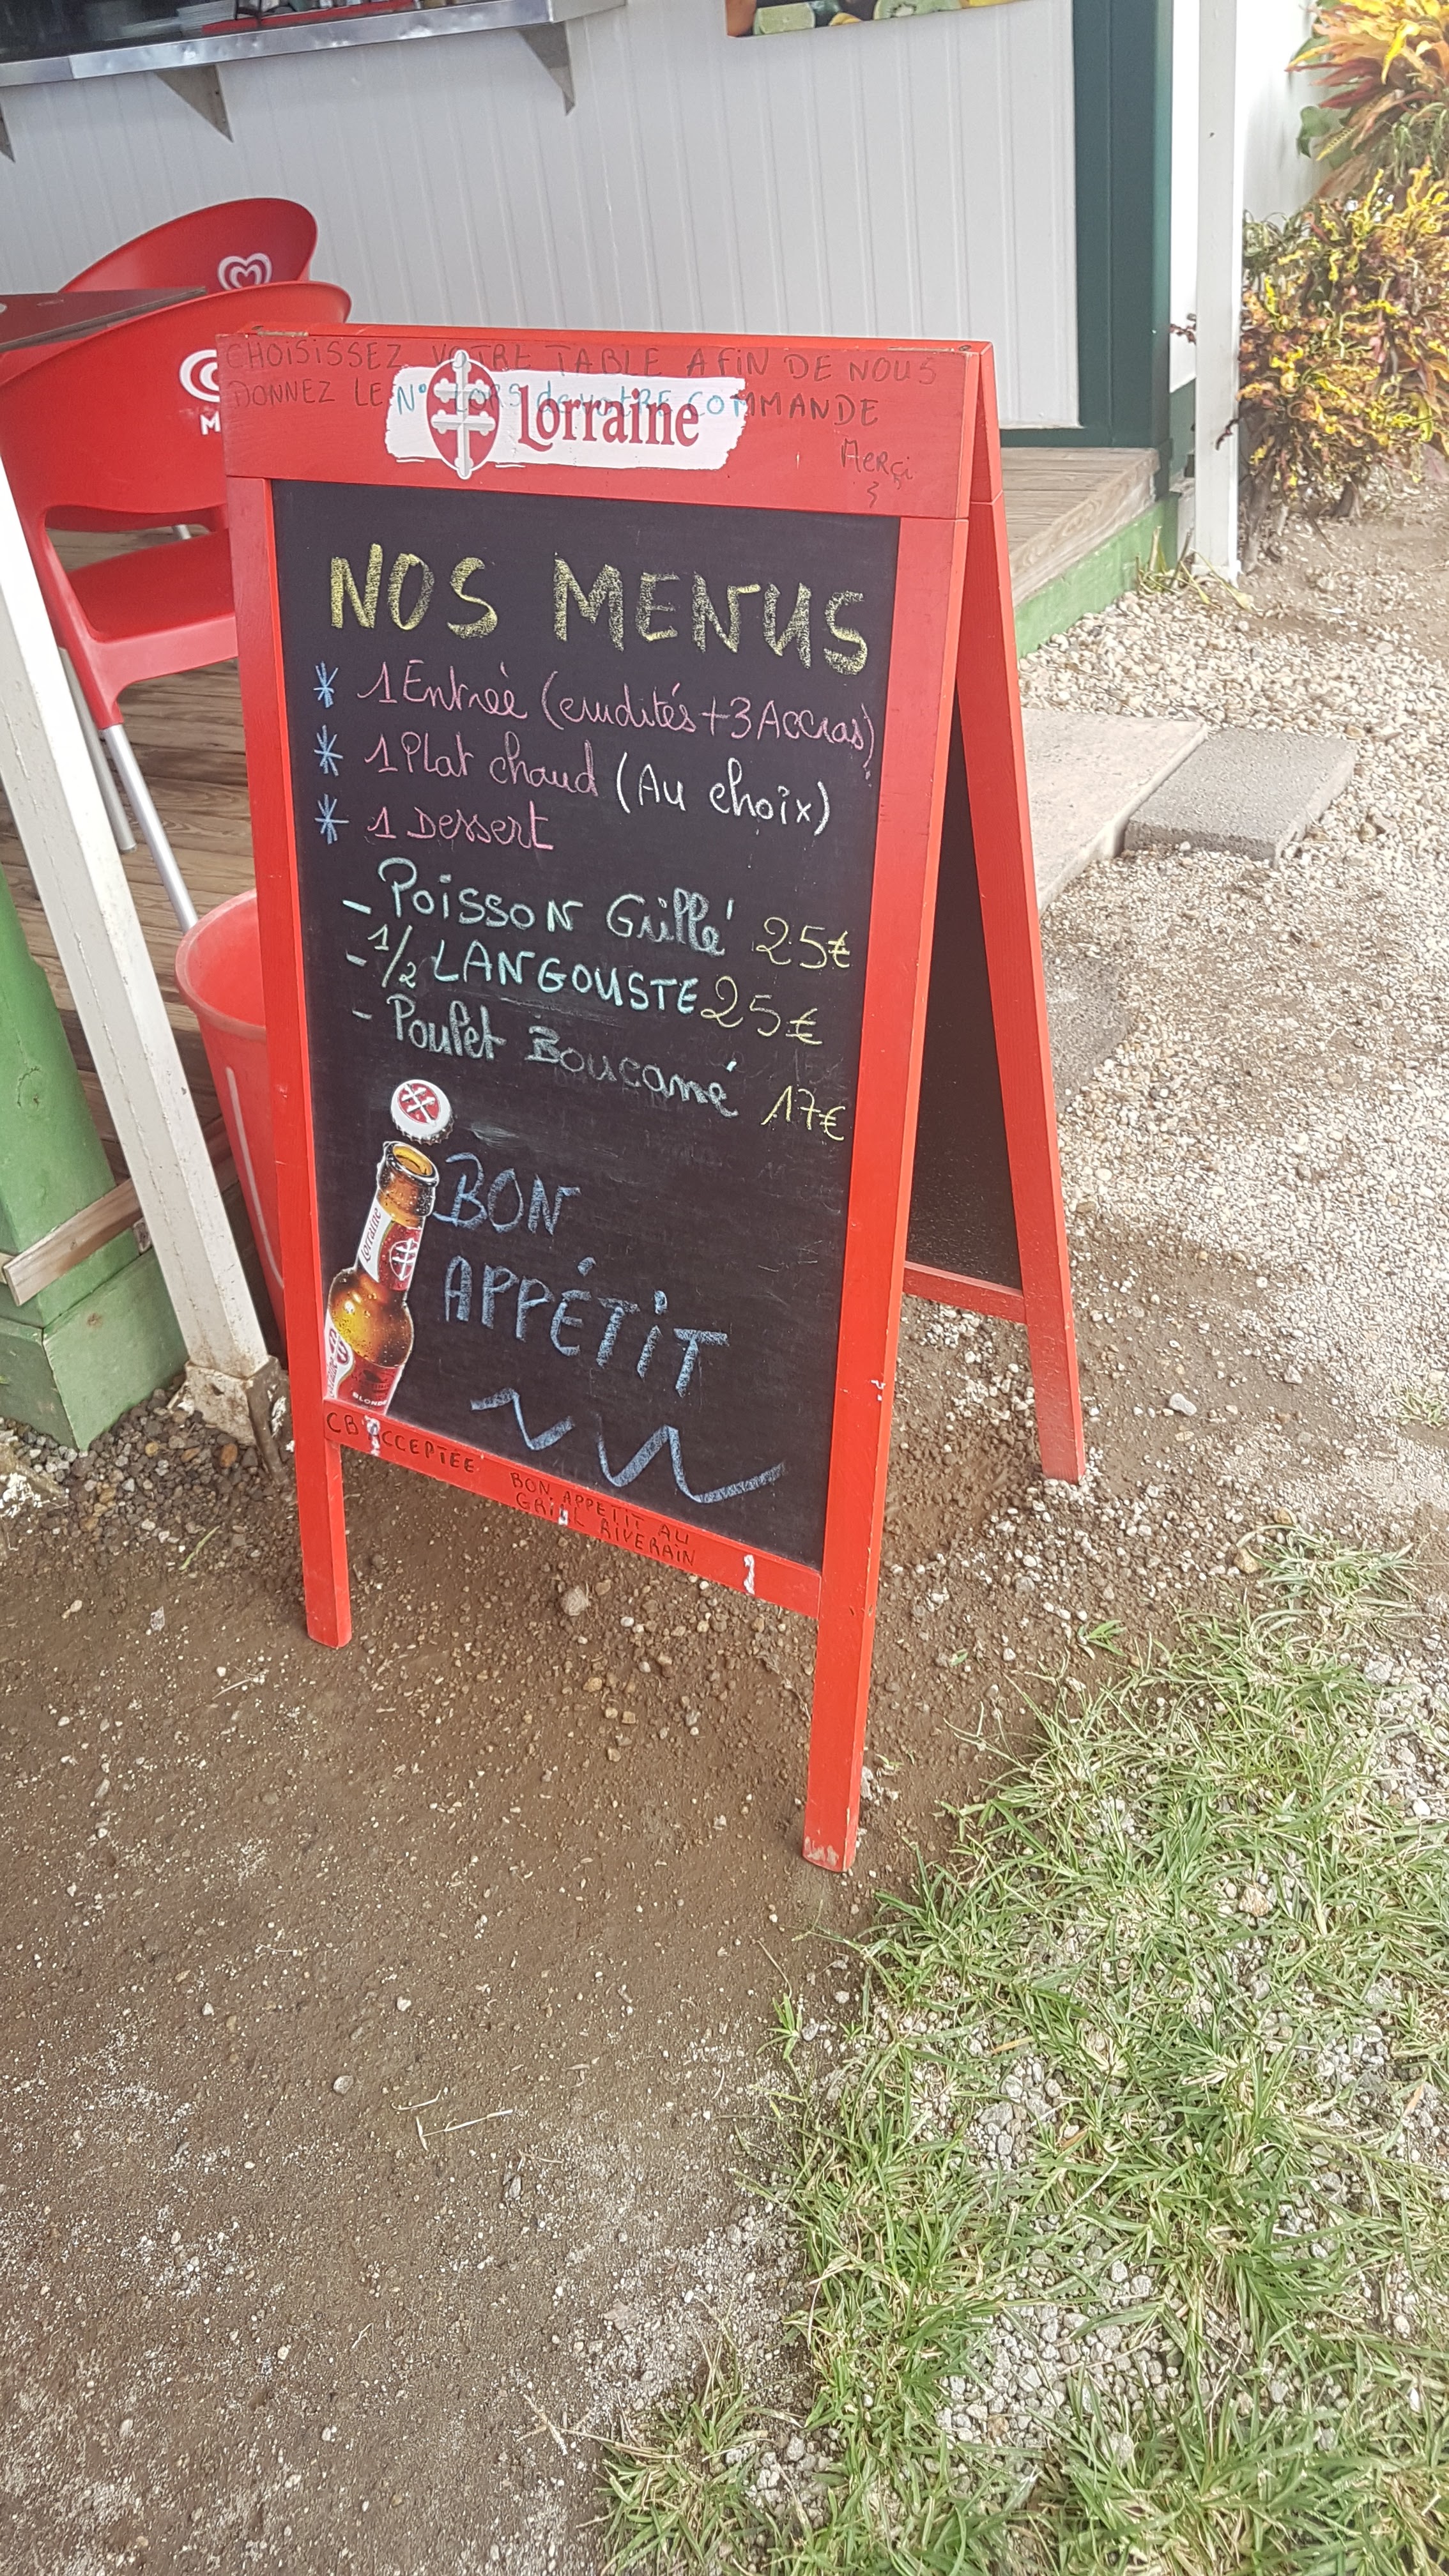 CHOISISSEZ VOTRE TABLE AFIN DE NOUS
DONNEZ LE N° LORS de votRE COMMANDE
Merçi
Lorraine
NOS MENUS
* 1 Entreè (crudités + 3 Accras)
* 1 Plat chaud (Au choix)
* 1 Dessert
- Poisson Grillé 25€
- 1/2 LANGOUSTE 25€
- Poulet Boucané 17€
BON
APPÉTIT
Lorraine
BLONDE
CB ACCEPTEE
BON APPETIT AU
GRILL RIVERAIN